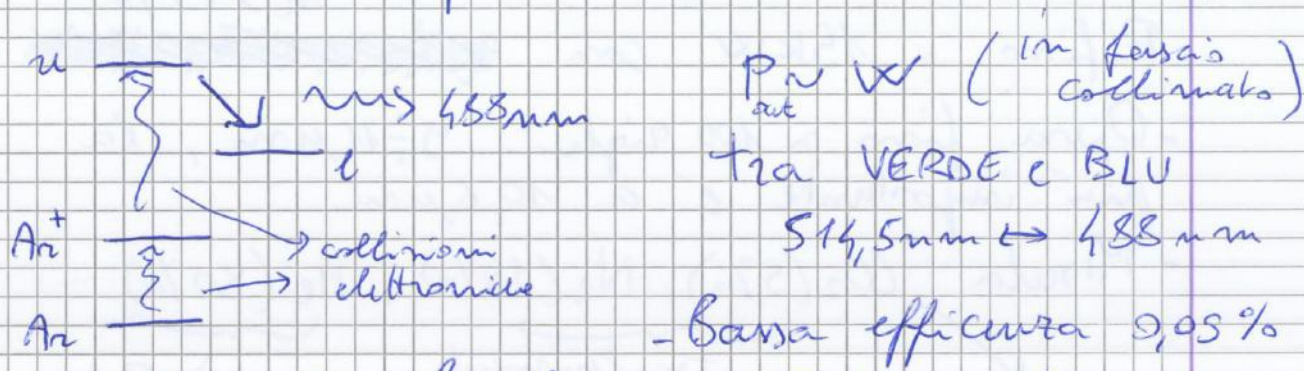 u
488nm
l
Ar+
collisioni
elettroniche
Ar
Pout ~ W (in fascio collimato)
tra VERDE e BLU
514,5nm ↔ 488nm
- Bassa efficenza 0,05%